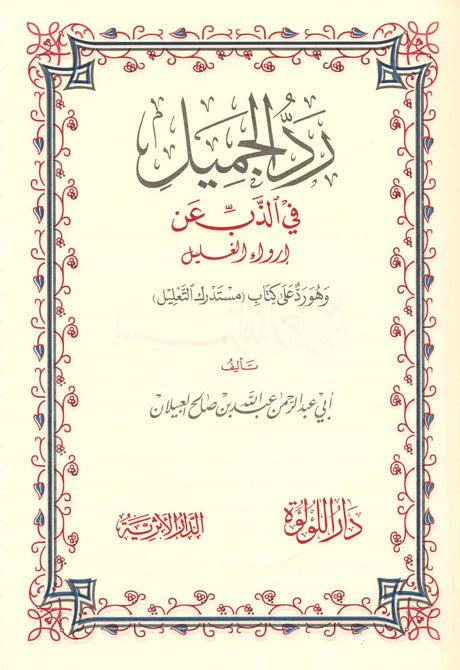 رَدُّ الجَمِيل
فِي الذَّبِّ عَن
إرواء الغليل
وَهُوَ رَدٌّ عَلَى كِتَابِ (مُسْتَدْرَكِ التَّعْلِيل)
تَأليفُ
أبي عبد الرحمن عبد الله بن صالح العبيلان
دَارُ اللُّؤلُؤَة
الدَّارُ الأَثَرِيَّةُ